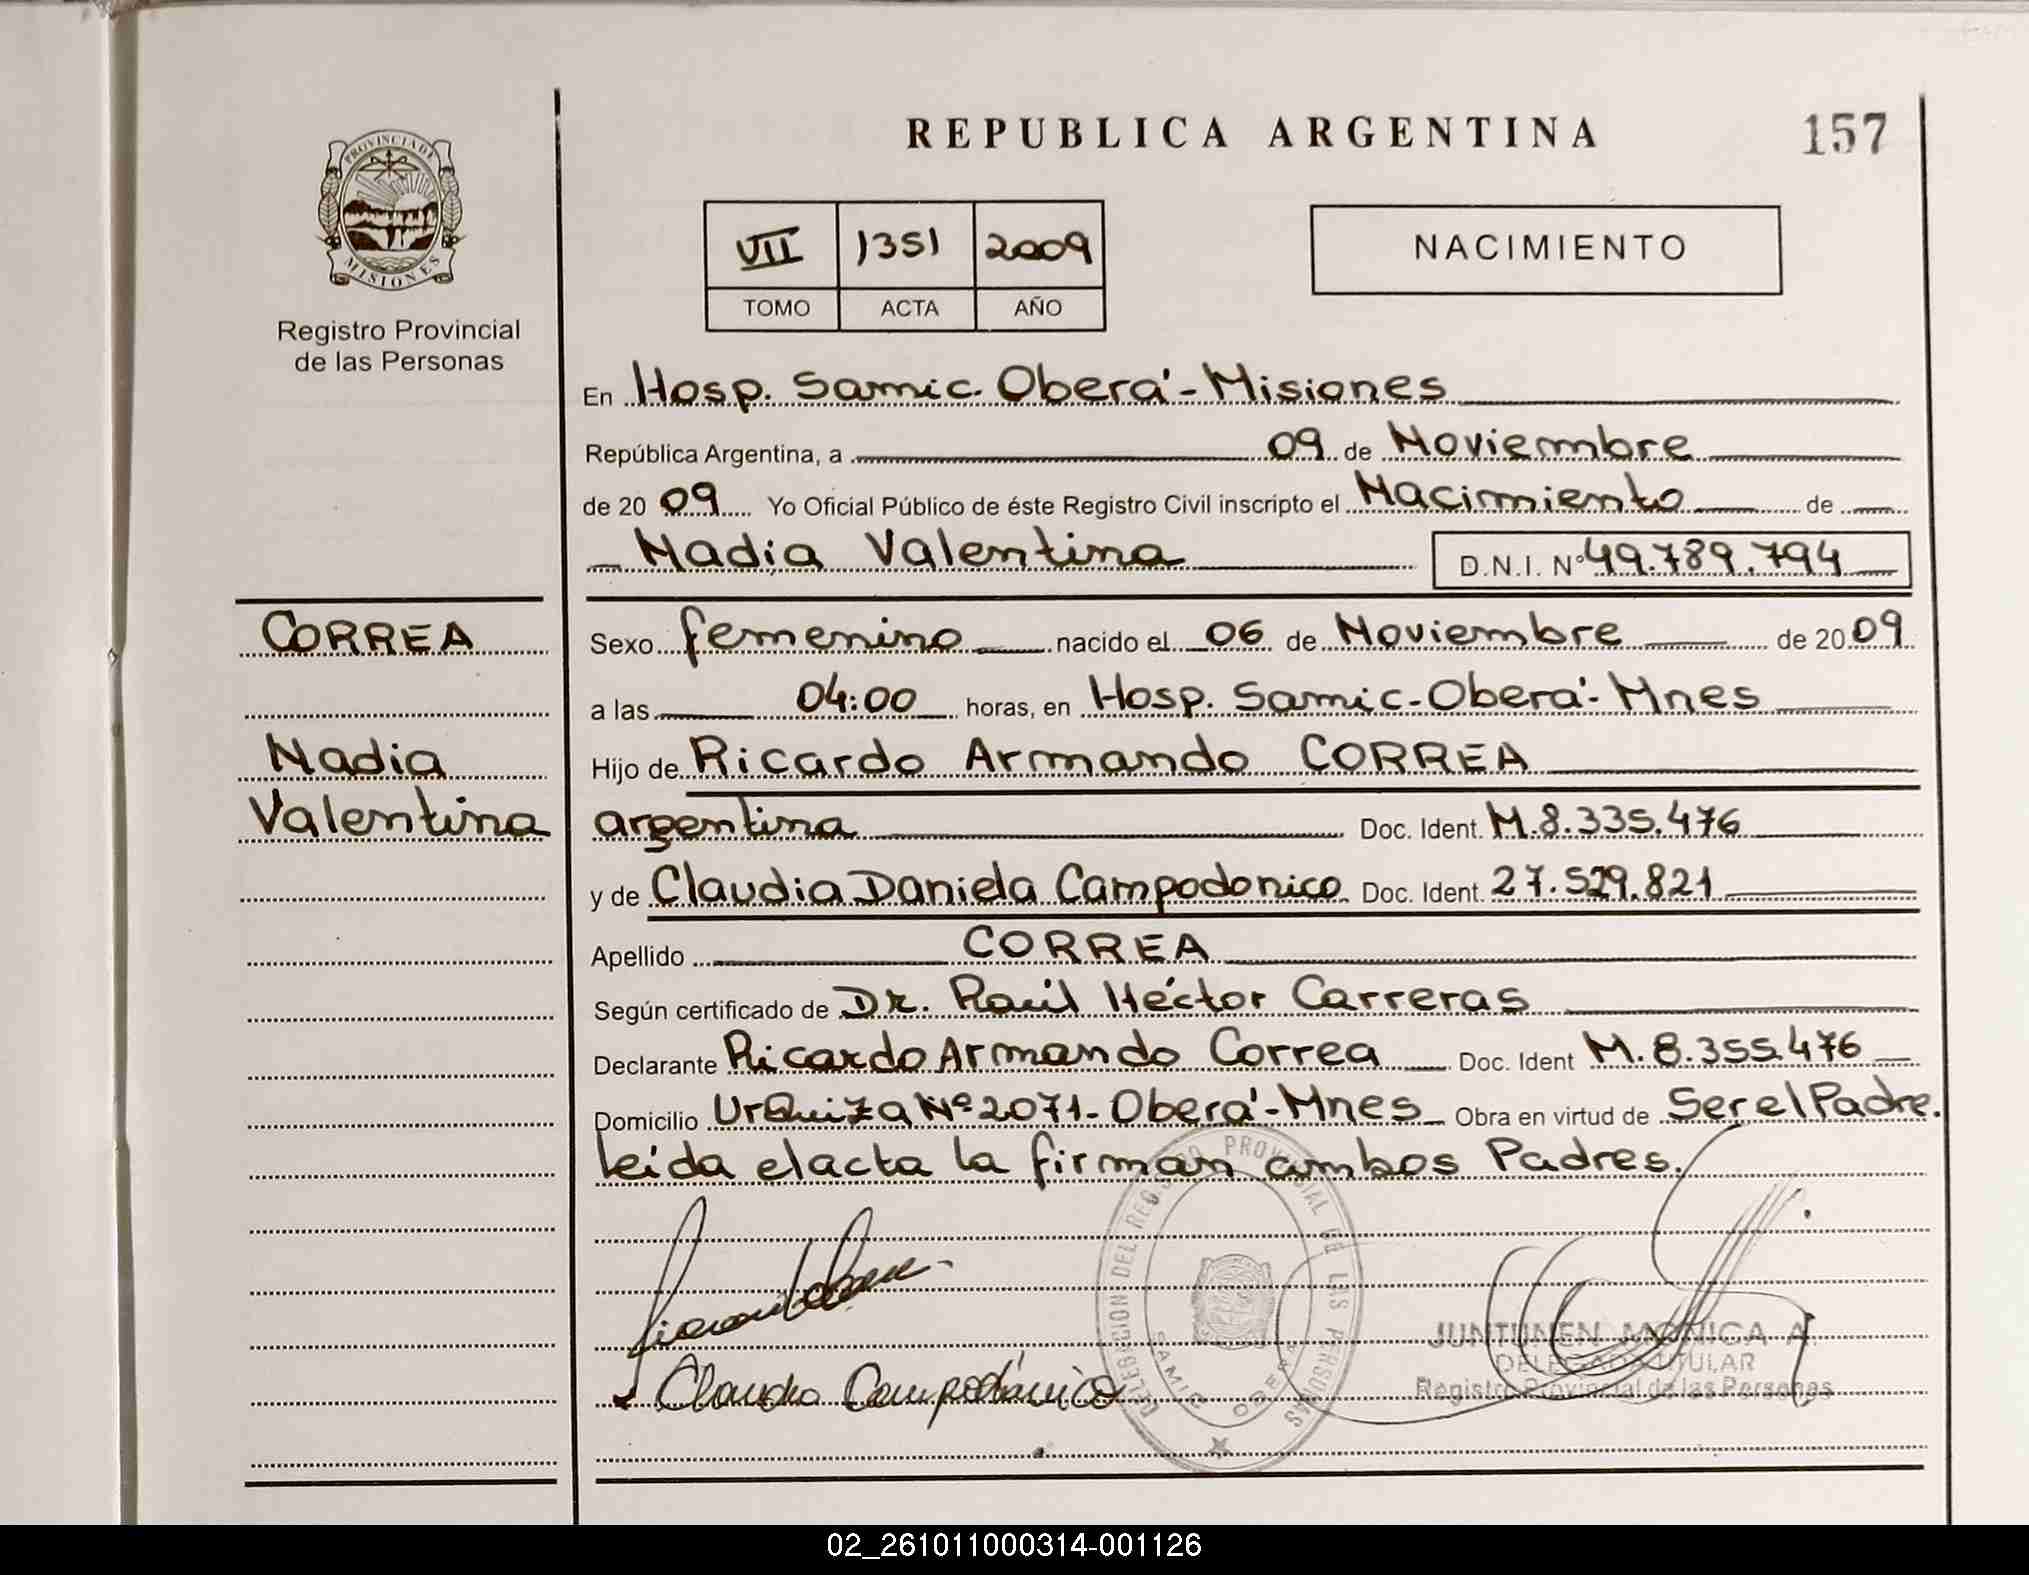 REPUBLICA ARGENTINA
157
PROVINCIA DE
MISIONES
Registro Provincial
de las Personas
VII 1351 2009
TOMO ACTA AÑO
NACIMIENTO
En Hosp. Samic. Oberá - Misiones
República Argentina, a 09 de Noviembre
de 20 09 Yo Oficial Público de éste Registro Civil inscripto el Nacimiento de
Nadia Valentina D.N.I. Nº 49.789.794
CORREA
Nadia
Valentina
Sexo femenino nacido el 06 de Noviembre de 20 09
a las 04:00 horas, en Hosp. Samic - Oberá - Mnes
Hijo de Ricardo Armando CORREA
argentina Doc. Ident. M.8.335.476
y de Claudia Daniela Campodonico Doc. Ident. 27.529.821
Apellido CORREA
Según certificado de Dr. Raúl Héctor Carreras
Declarante Ricardo Armando Correa Doc. Ident M.8.355.476
Domicilio Urquiza Nº 2071 - Oberá - Mnes Obra en virtud de Ser el Padre.
leída el acta la firman ambos Padres.
DELEGACION DEL REGISTRO PROVINCIAL DE LAS PERSONAS
SAMIC OBERA
Claudia Campodónico
JUNTUNEN MONICA A.
DELEGADA TITULAR
Registro Provincial de las Personas
02_261011000314-001126